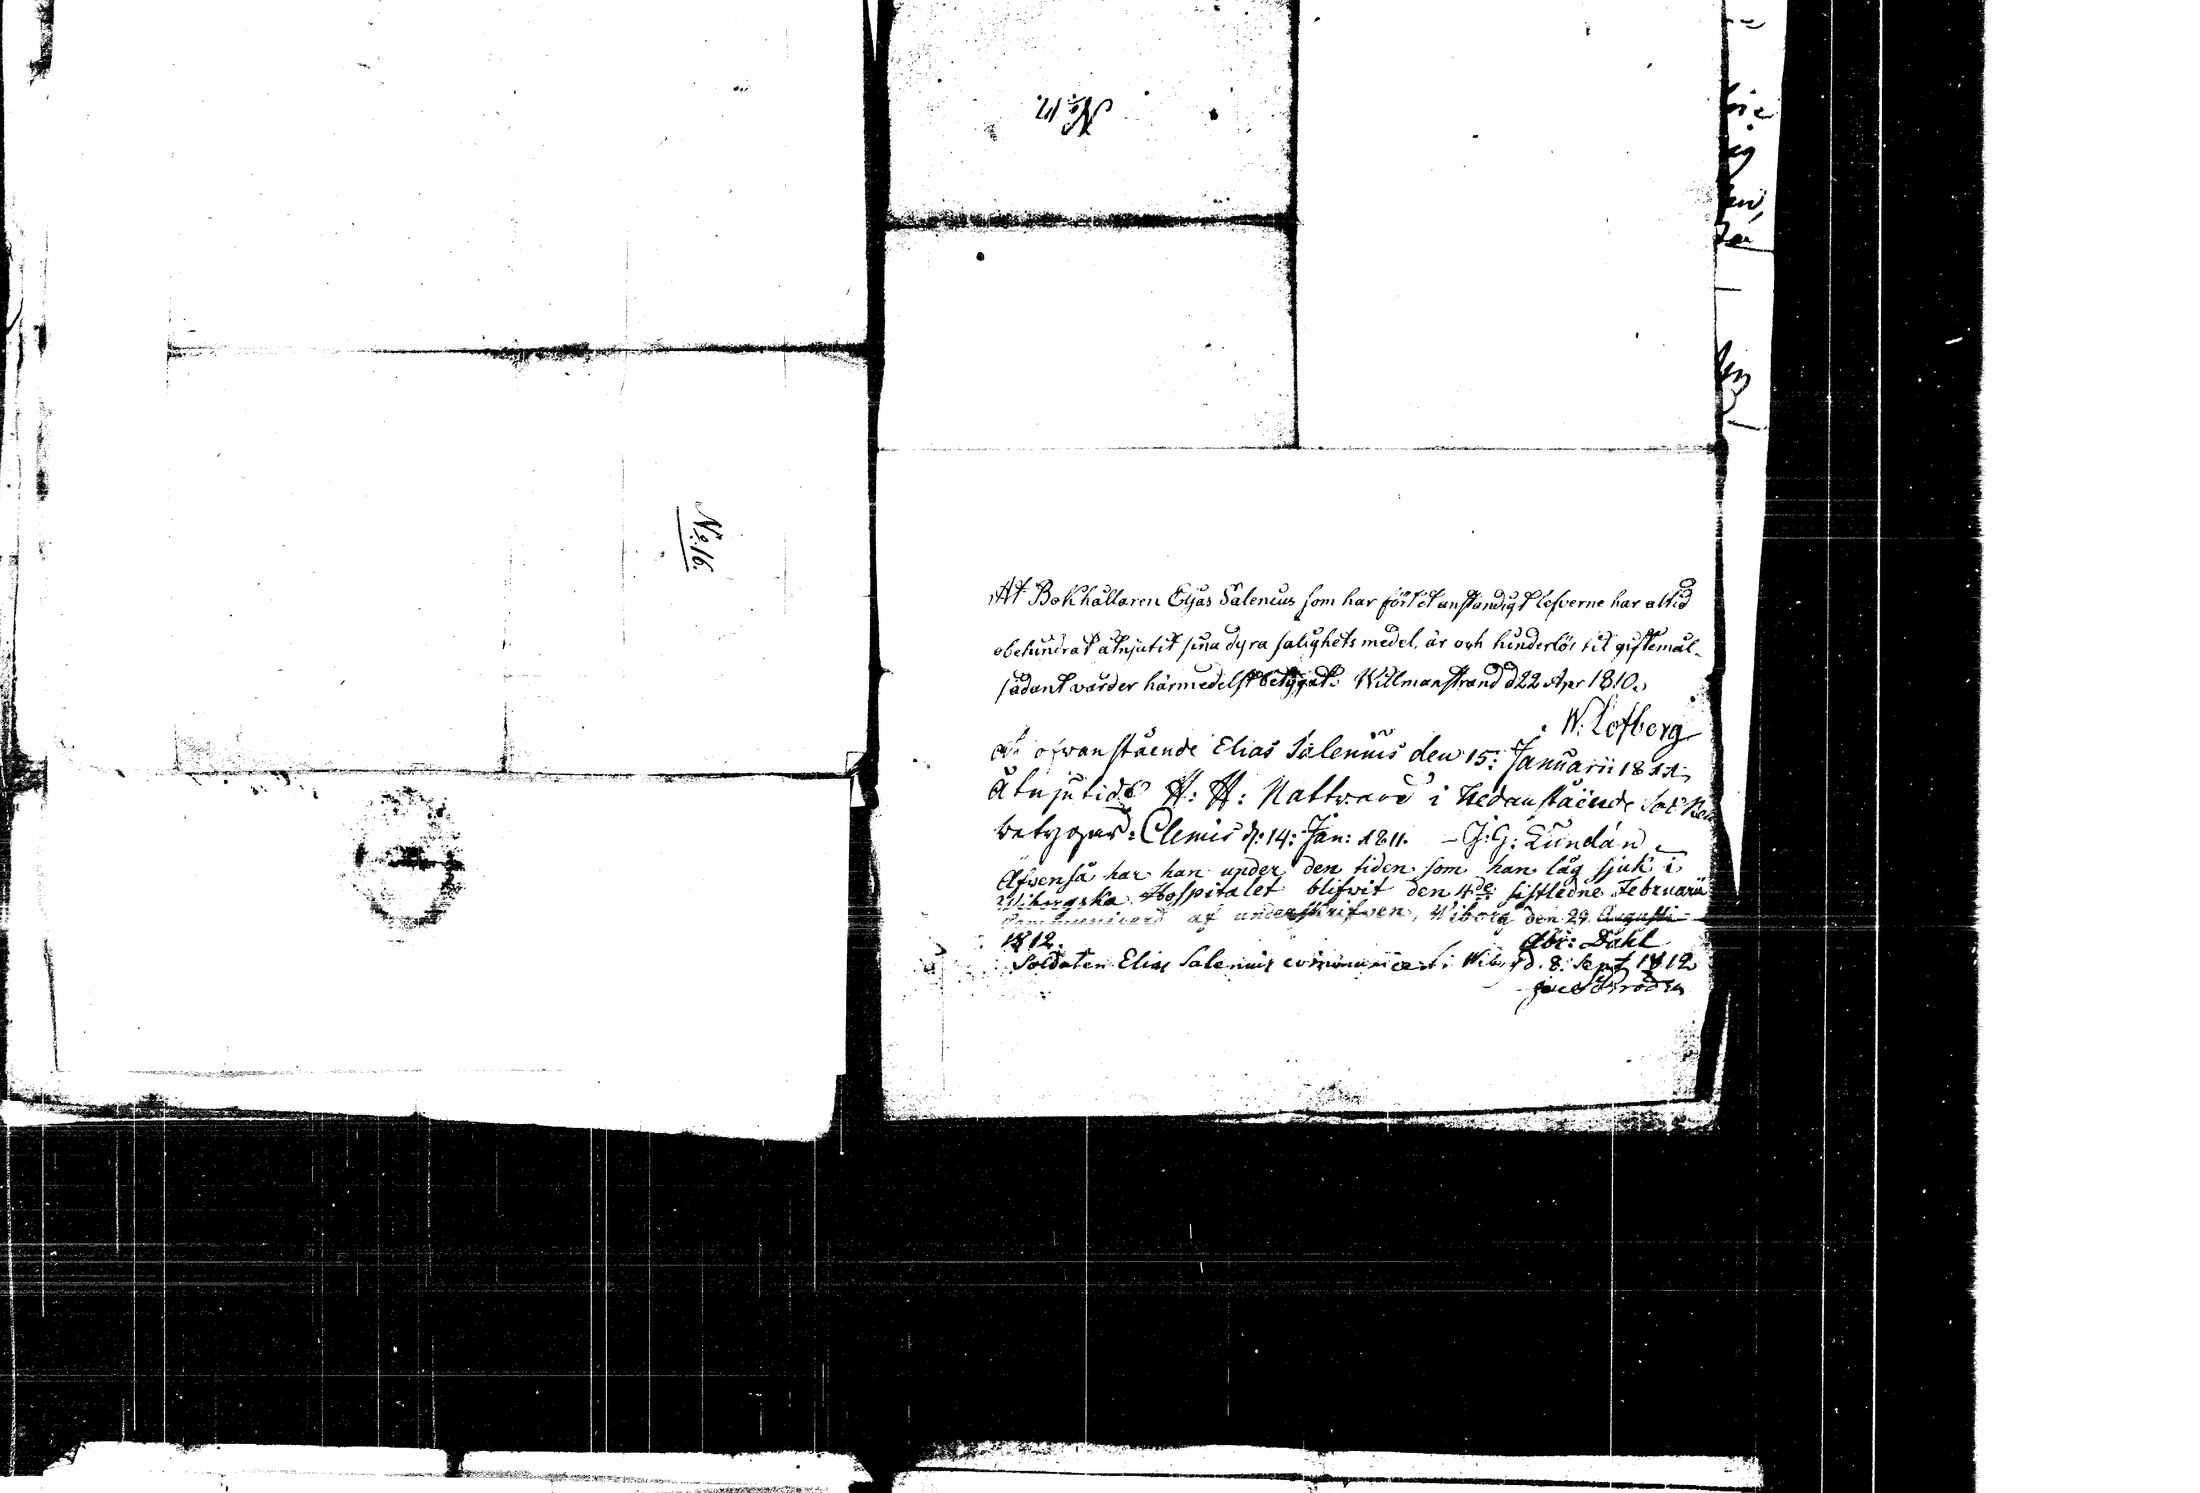 No: 16.
No: 17.
At Bokhållaren Eljas Salenius som har fört et anständigt lefverne har altid
obehindrat åtnjutit sina dyra salighets medel, är och hinderlös til giftemål-
sådant varder härmedelst betygat. Willmanstrand d 22 Apr 1810.
W. Lofberg
At ofwanstående Elias Salenius den 15: Januarii 1811
Åtnjutidt H: H: Nattward i Nedanstående Socken
betygar: Clemis d: 14: Jan: 1811. - J: G: Lundán
Äfwenså har han under den tiden som han låg sjuk i
Wiborgska Hospitalet blifwit den 4de sistledne Februarii
Communicerd af underskrifven, Wiborg den 29. Augusti
1812. Abr: Dahl
Soldaten Elias Salenius communicerat i Wib. d. 8. Sept 1812